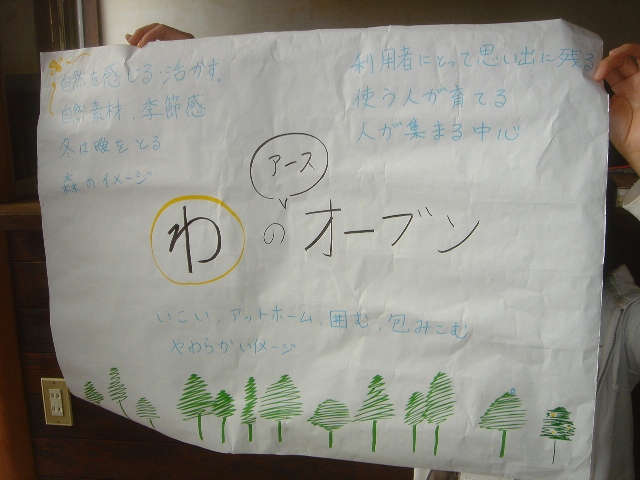 自然を感じる・活かす。
自然素材、季節感
冬は暖をとる
森のイメージ
利用者にとって思い出に残る
使う人が育てる
人が集まる中心
アース
わ の オーブン
いこい、アットホーム、囲む、包みこむ
やわらかいイメージ